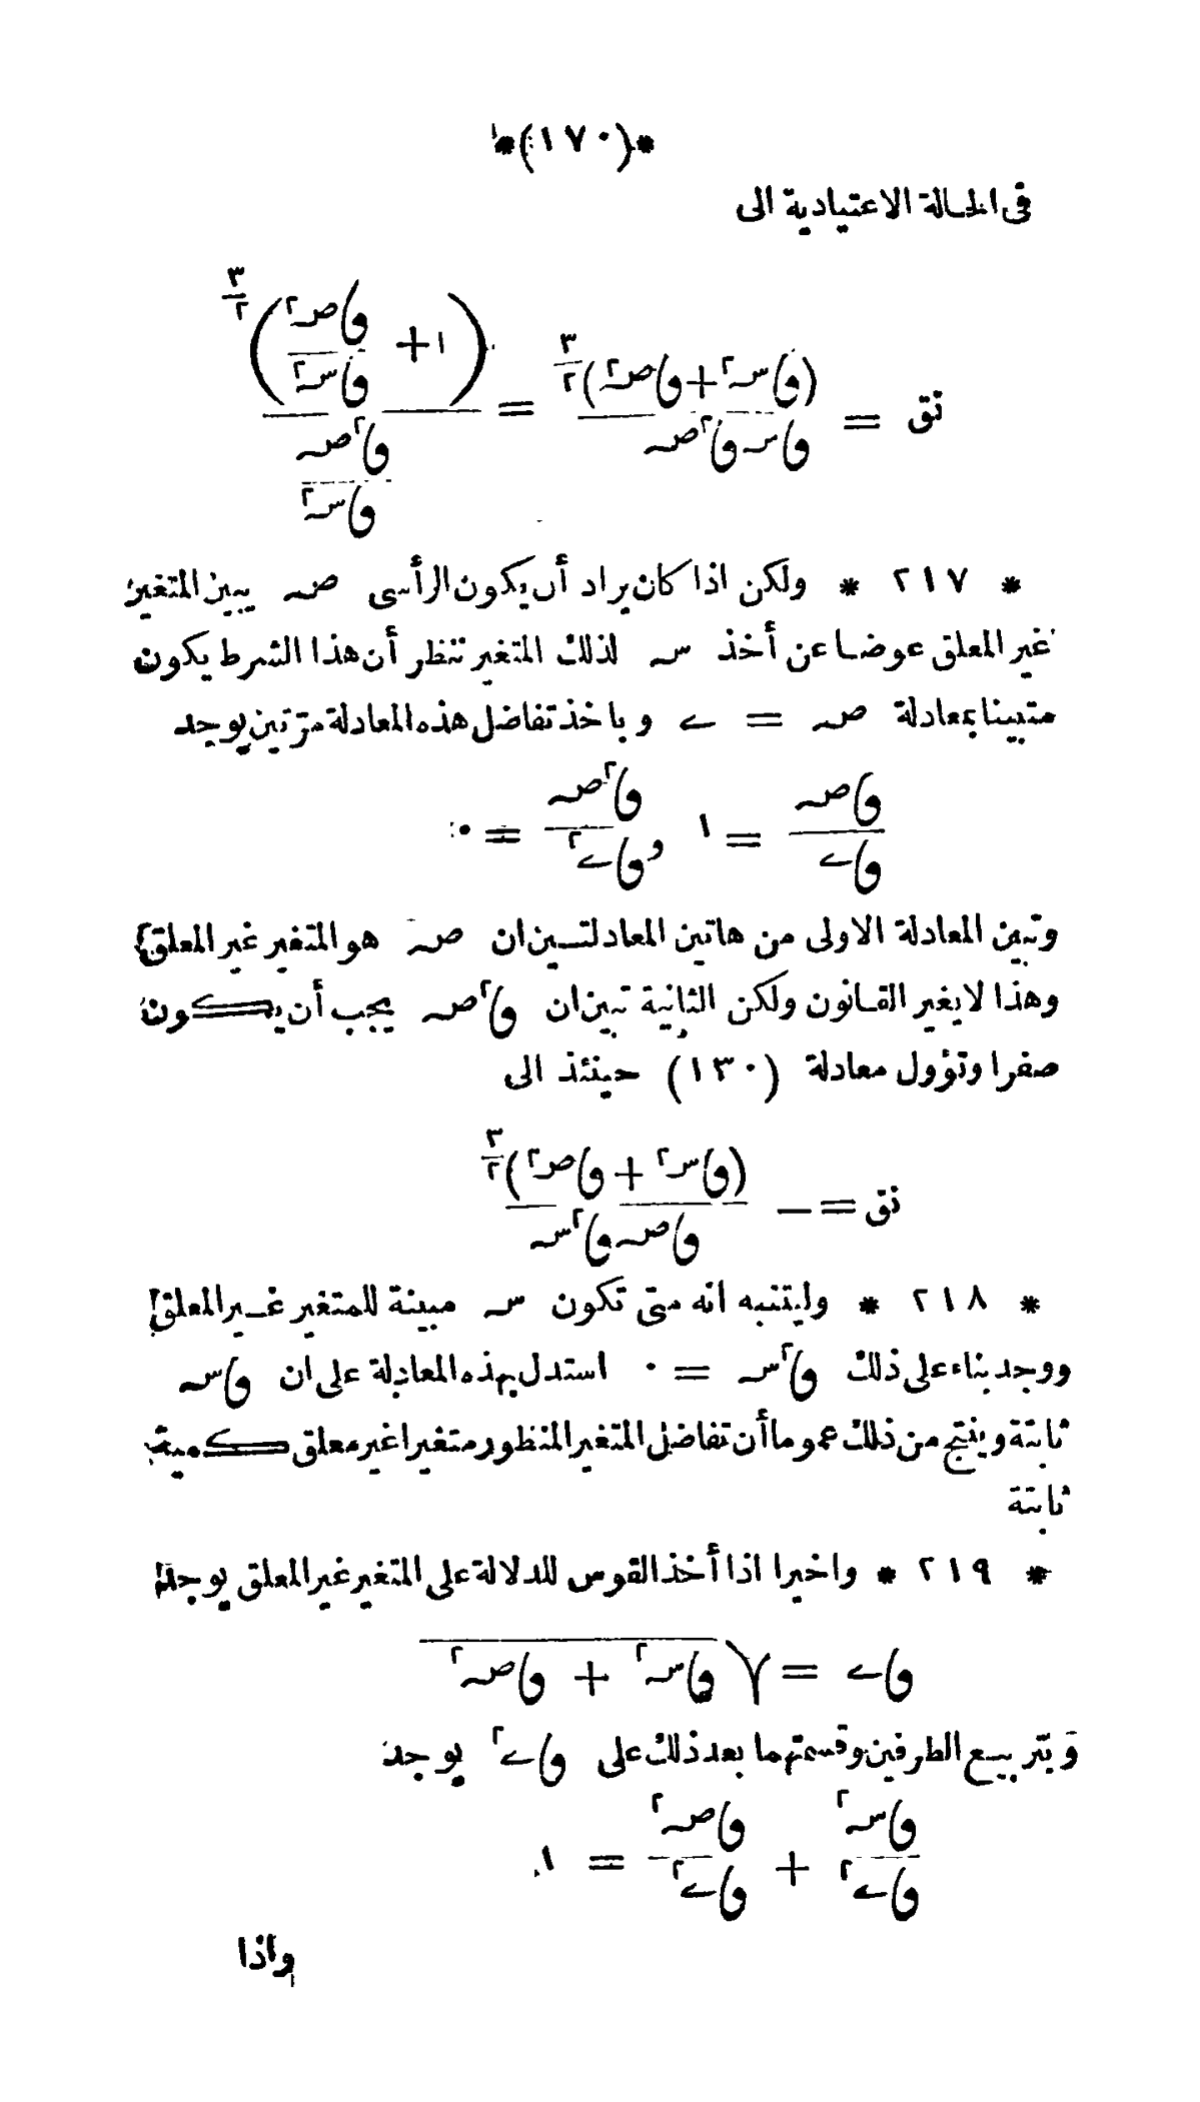 *(١٧٠)*
فى الحالة الاعتيادية الى
نق = (ڡاس٢ + ڡاص٢)٣/٢ / ڡاس ڡا٢ص = (١ + ڡاص٢/ڡاس٢)٣/٢ / (ڡا٢ص/ڡاس٢)
* ٢١٧ * ولكن اذا كان يراد أن يكون الرأسى ص يبين المتغير
غير المعلق عوضا عن أخذ س لذلك المتغير ننظر أن هذا الشرط يكون
متبينا بمعادلة ص = ے وباخذ تفاضل هذه المعادلة مرّتين يوجد
ڡاص/ڡاے = ١ و ڡا٢ص/ڡاے٢ = ٠
وتبين المعادلة الاولى من هاتين المعادلتين ان ص هو المتغير غير المعلق
وهذا لا يغير القانون ولكن الثانية تبين ان ڡا٢ص يجب أن يكون
صفرا وتؤول معادلة (١٣٠) حينئذ الى
نق = − (ڡاس٢ + ڡاص٢)٣/٢ / ڡاص ڡا٢س
* ٢١٨ * وليتنبه انه متى تكون س مبينة للمتغير غير المعلق
ووجد بناء على ذلك ڡا٢س = ٠ استدل بهذه المعادلة على ان ڡاس
ثابتة وينتج من ذلك عموما أن تفاضل المتغير المنظور متغيرا غير معلق كمية
ثابتة
* ٢١٩ * واخيرا اذا أخذ القوس للدلالة على المتغير غير المعلق يوجد
ڡاے = √(ڡاس٢ + ڡاص٢)
وبتربيع الطرفين وقسمتهما بعد ذلك على ڡاے٢ يوجد
ڡاس٢/ڡاے٢ + ڡاص٢/ڡاے٢ = ١
واذا